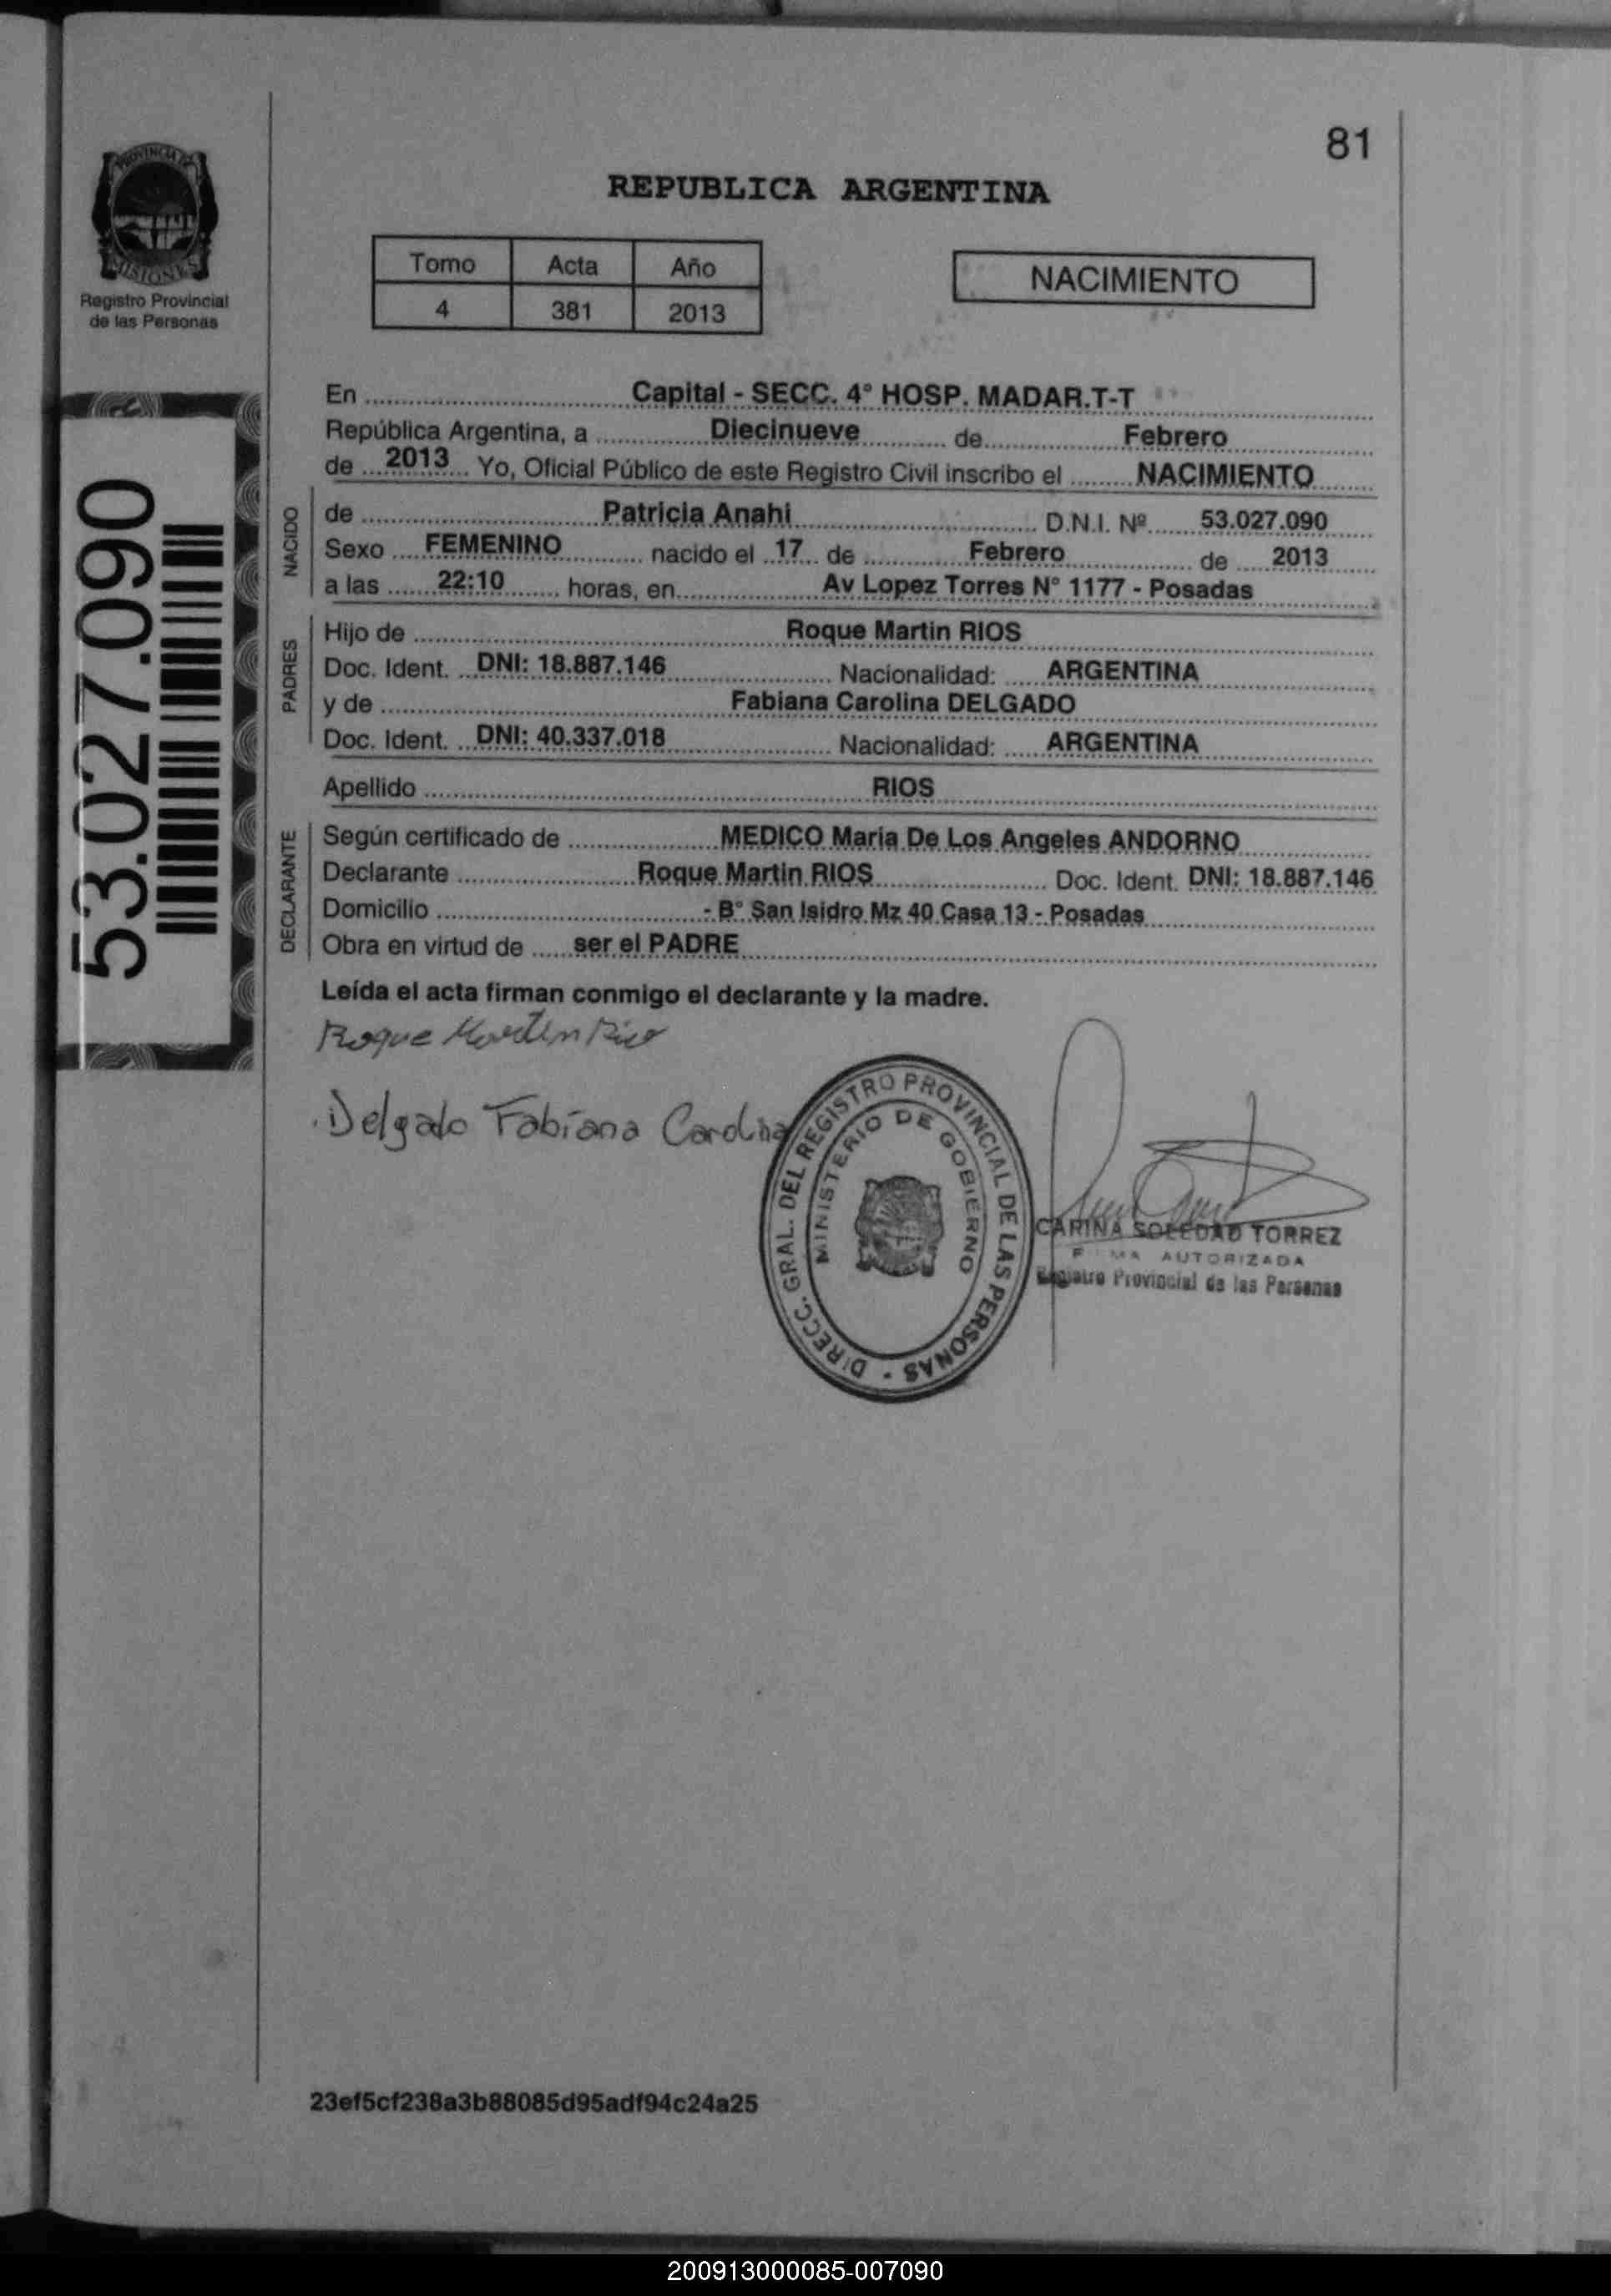 81
PROVINCIA DE
MISIONES
Registro Provincial
de las Personas
REPUBLICA ARGENTINA
Tomo Acta Año
4 381 2013
NACIMIENTO
53.027.090
En Capital - SECC. 4° HOSP. MADAR.T-T
República Argentina, a Diecinueve de Febrero
de 2013 Yo, Oficial Público de este Registro Civil inscribo el NACIMIENTO
NACIDO
de Patricia Anahi D.N.I. Nº 53.027.090
Sexo FEMENINO nacido el 17 de Febrero de 2013
a las 22:10 horas, en Av Lopez Torres N° 1177 - Posadas
PADRES
Hijo de Roque Martin RIOS
Doc. Ident. DNI: 18.887.146 Nacionalidad: ARGENTINA
y de Fabiana Carolina DELGADO
Doc. Ident. DNI: 40.337.018 Nacionalidad: ARGENTINA
Apellido RIOS
DECLARANTE
Según certificado de MEDICO Maria De Los Angeles ANDORNO
Declarante Roque Martin RIOS Doc. Ident. DNI: 18.887.146
Domicilio - B° San Isidro Mz 40 Casa 13 - Posadas
Obra en virtud de ser el PADRE
Leída el acta firman conmigo el declarante y la madre.
Roque Martin Rios
Delgado Fabiana Carolina
DIRECC. GRAL. DEL REGISTRO PROVINCIAL DE LAS PERSONAS -
MINISTERIO DE GOBIERNO
CARINA SOLEDAD TORREZ
FIRMA AUTORIZADA
Registro Provincial de las Personas
23ef5cf238a3b88085d95adf94c24a25
200913000085-007090